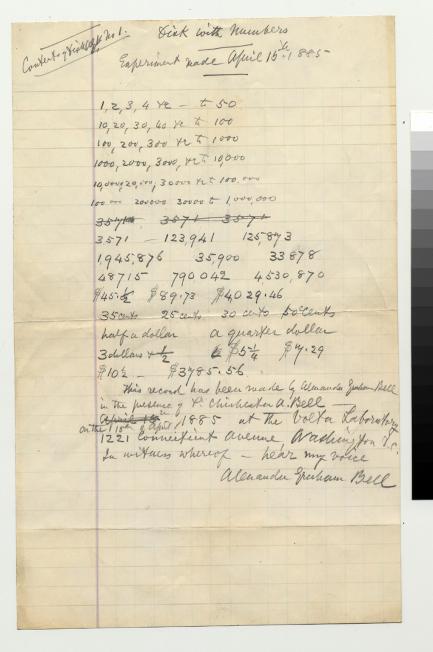 Contents of Disk No 1.
Disk with Numbers
Experiment made April 15th, 1885
1, 2, 3, 4 &c — to 50
10, 20, 30, 40 &c to 100
100, 200, 300 &c to 1000
1000, 2000, 3000, &c to 10,000
10,000, 20,000, 30000 &c to 100,000
100 000 200000 30000 to 1,000,000
3571 3571 3571
3571 — 123,941 125,873
1,945,876 35,900 33878
48715 790042 4,530,870
$45.½ $89.73 $4029.46
35 cents 25 cents 30 cents 50 cents
half a dollar a quarter dollar
3 dollars & ½ $5¼ $7.29
$10½ — $3785.56.
This record has been made by Alexander Graham Bell
in the presence of Dr. Chichester A. Bell —
on the 15th of April, 1885 at the Volta Laboratory
1221 Connecticut Avenue Washington D.C.
In witness whereof — hear my voice
Alexander Graham Bell